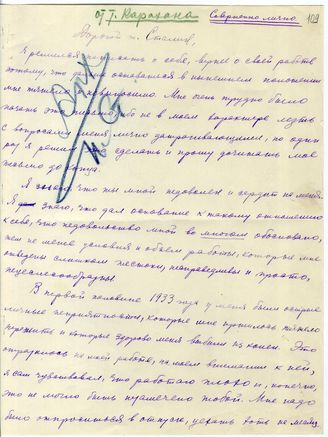 от т. Карахана Совершенно лично 109
Дорогой т. Сталин,
Я решился написать о себе, вернее о своей работе
потому, что дальше оставаться в нынешнем положении
мне тяжело и невыносимо. Мне очень трудно было
начать это письмо, ибо не в моем характере лезть
с вопросами меня лично затрагивающими, но один
раз я решил это сделать и прошу дочитать мое
письмо до конца.
Я знаю, что ты мной недоволен и сердит на меня.
Я знаю, что дал основание к такому отношению
к себе, что недовольство мной во многом обосновано,
тем не менее условия и объем работы, которые мне
отведены слишком жестоки, несправедливы и просто,
нецелесообразны.
В первой половине 1933 года у меня были острые
личные неприятности, которые мне пришлось тяжело
пережить и которые здорово меня выбили из колеи. Это
отразилось на моей работе, на моем внимании к ней,
я сам чувствовал, что работаю плохо и, конечно,
это не могло быть незамечено тобой. Мне надо
было отпроситься в отпуск, уехать хоть не надолго